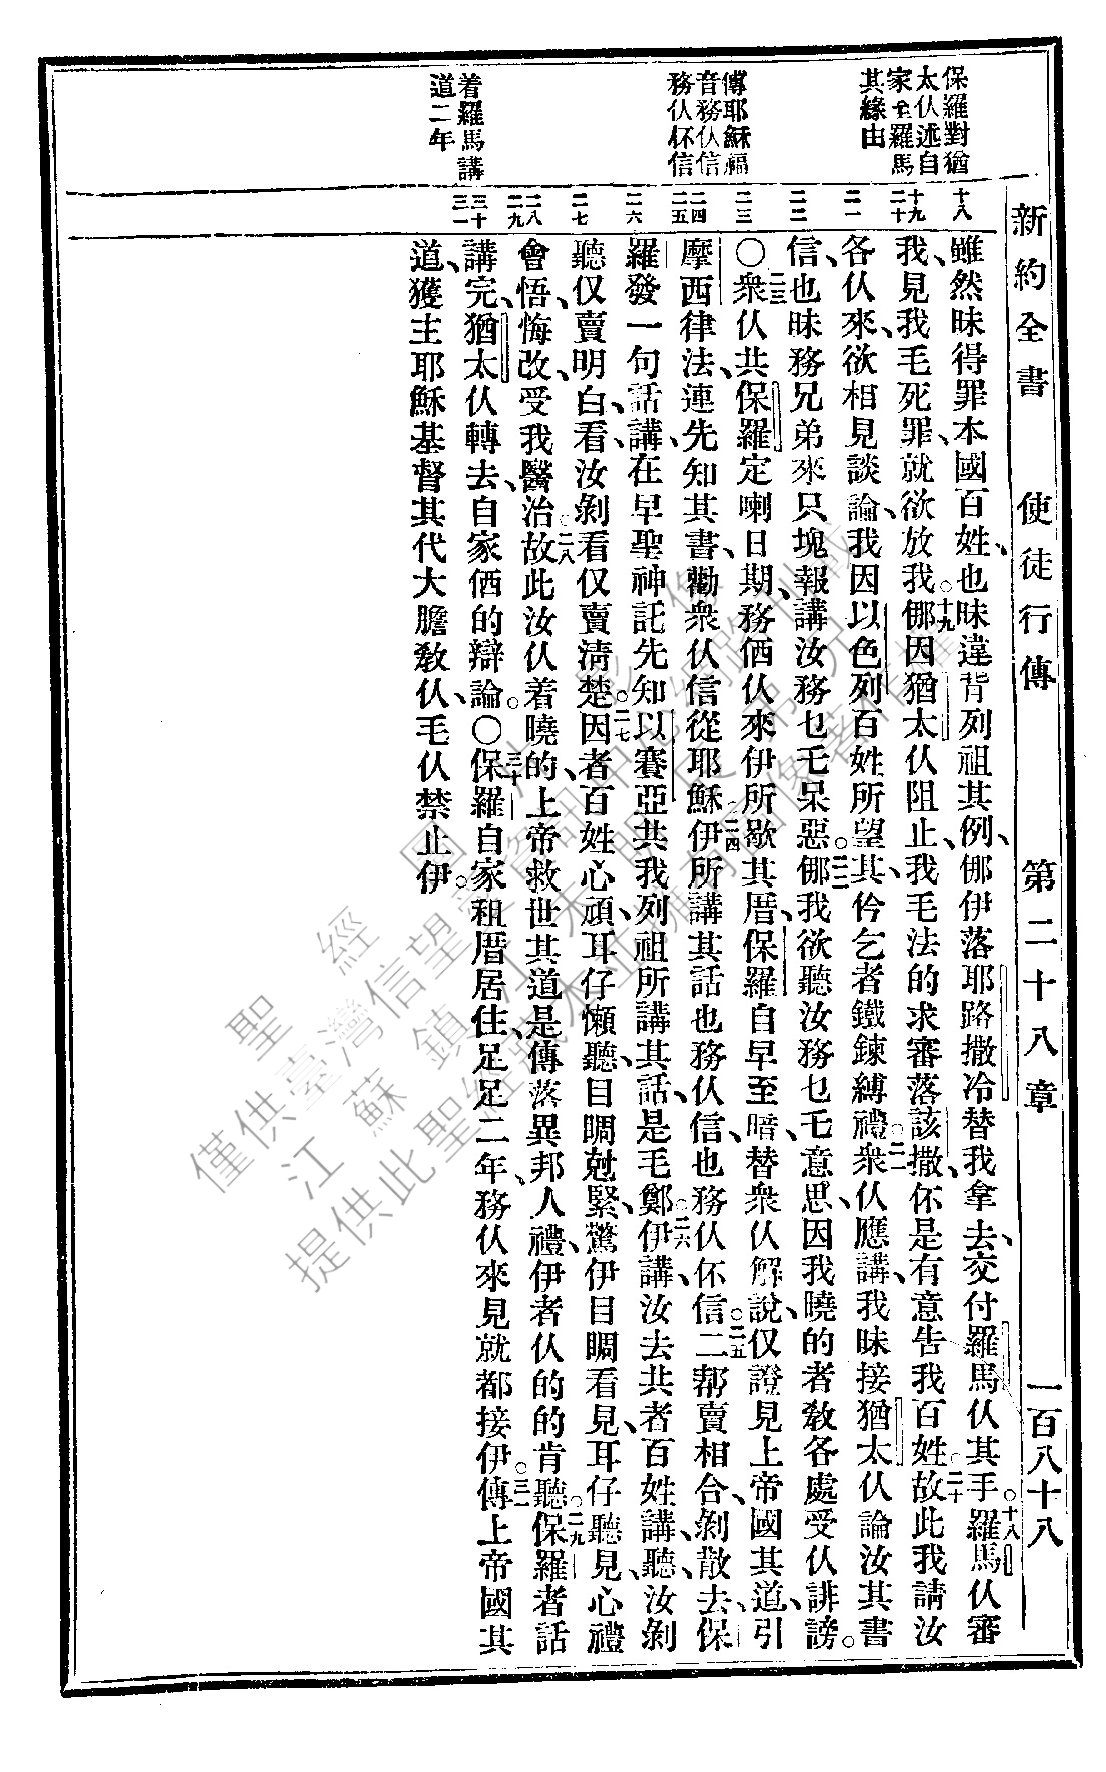 新約全書　使徒行傳　第二十八章　一百八十八
保羅對猶
太仸述自
家至羅馬
其緣由
傳耶穌福
音務仸信
務仸伓信
着羅馬講
道二年
十八
十九
二十
二一
二二
二三
二四
二五
二六
二七
二八
二九
三十
三一
雖然昧得罪本國百姓、也昧違背列祖其例、倻伊落耶路撒冷替我拿去、交付羅馬仸其手。○十八羅馬仸審
我、見我毛死罪、就欲放我。○十九倻因猶太仸阻止、我毛法的求審落該撒、伓是有意告我百姓。○二十故此我請汝
各仸來、欲相見談論、我因以色列百姓所望其、仱乞者鐵鍊縛禮。○二一衆仸應講、我昧接猶太仸論汝其書
信、也昧務兄弟來只塊報講汝務乜乇呆惡。○二二倻我欲聽汝務乜乇意思、因我曉的者敎各處受仸誹謗。
○二三衆仸共保羅定喇日期、務伵仸來伊所歇其厝、保羅自早至暗、替衆仸解說、仅證見上帝國其道、引
摩西律法、連先知其書、勸衆仸信從耶穌。○二四伊所講其話、也務仸信、也務仸伓信。○二五二帮賣相合、剝散去、保
羅發一句話、講、在早聖神託先知以賽亞共我列祖所講其話、是毛鄭。○二六伊講、汝去共者百姓講、聽、汝剝
聽仅賣明白、看、汝剝看仅賣淸楚。○二七因者百姓心頑、耳仔懶聽、目睭尅緊、驚伊目睭看見、耳仔聽見、心禮
會悟、悔改、受我醫治。○二八故此汝仸着曉的、上帝救世其道、是傳落異邦人禮、伊者仸的的肯聽。○二九保羅者話
講完、猶太仸轉去、自家伵的辯論。○三十保羅自家租厝居住、足足二年、務仸來見、就都接伊。○三一傳上帝國其
道、獲主耶穌基督其代、大膽敎仸、毛仸禁止伊。
聖經圖片影像
僅供臺灣信望愛資訊中心網路刊載